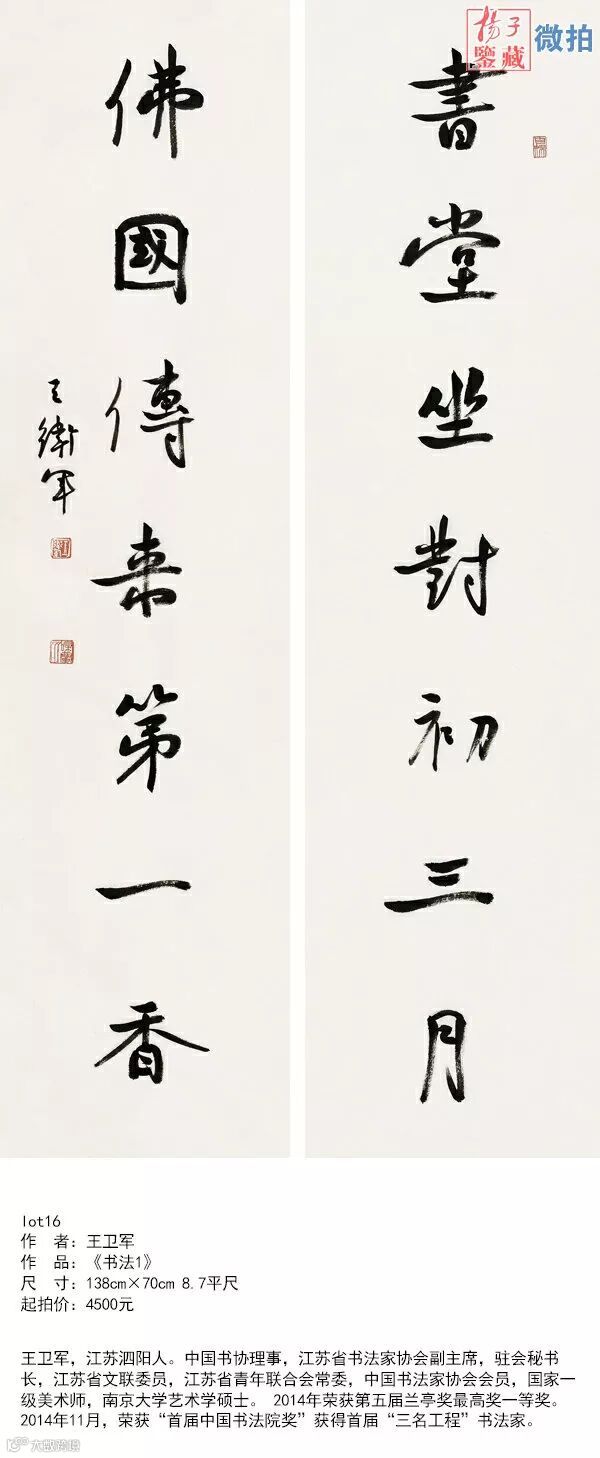 揚子
鑒藏
微拍
書堂坐對初三月
佛國傳來第一香
王衛軍
lot16
作 者：王卫军
作 品：《书法1》
尺 寸：138cm×70cm 8.7平尺
起拍价：4500元
王卫军，江苏泗阳人。中国书协理事，江苏省书法家协会副主席，驻会秘书
长，江苏省文联委员，江苏省青年联合会常委，中国书法家协会会员，国家一
级美术师，南京大学艺术学硕士。 2014年荣获第五届兰亭奖最高奖一等奖。
2014年11月，荣获“首届中国书法院奖”获得首届“三名工程”书法家。
大数跨境